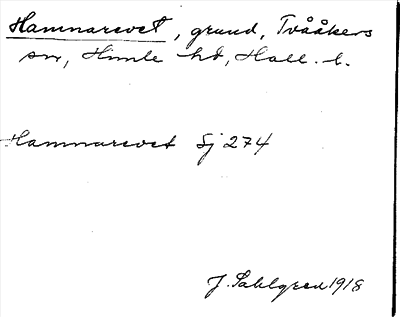 Hamnarevet, grund, Tvååkers
sn, Himle hd, Hall. l.
Hamnarevet Sj 274
J. Sahlgren 1918